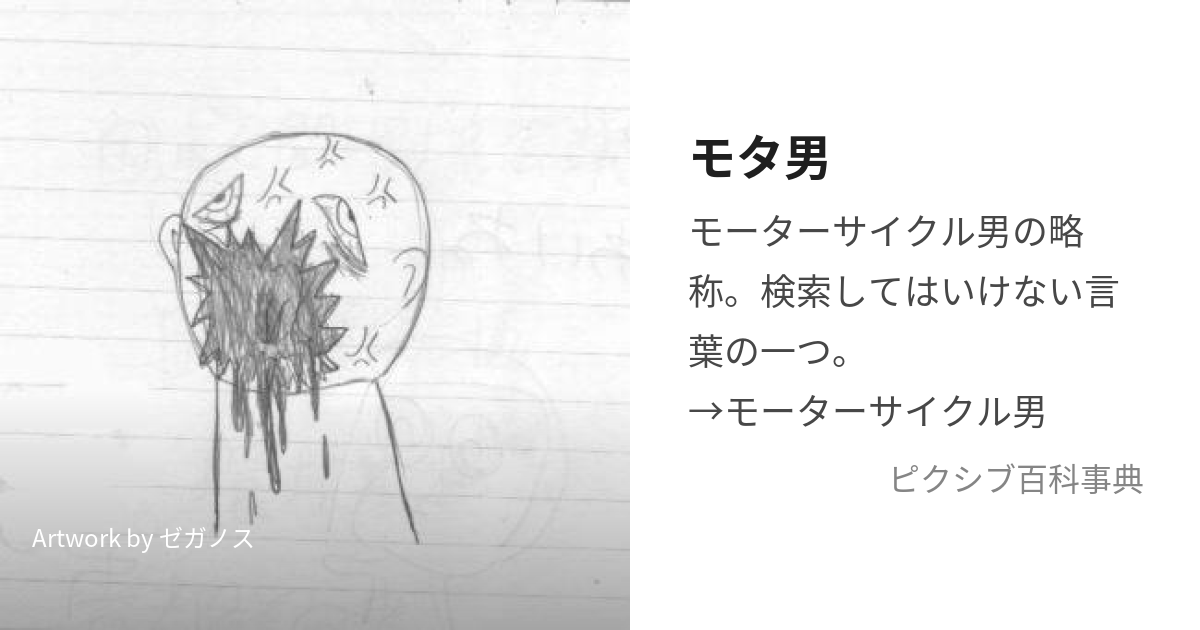 モタ男
モーターサイクル男の略
称。検索してはいけない言
葉の一つ。
→モーターサイクル男
ピクシブ百科事典
Artwork by ゼガノス